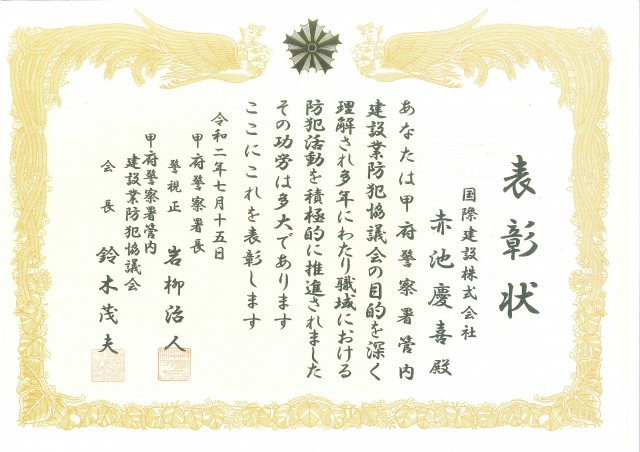 表彰状
国際建設株式会社
赤池慶喜殿
あなたは甲府警察署管内
建設業防犯協議会の目的を深く
理解され多年にわたり職域における
防犯活動を積極的に推進されました
その功労は多大であります
ここにこれを表彰します
令和二年七月十五日
甲府警察署長
警視正 岩柳治人
甲府警察署管内
建設業防犯協議会
会長 鈴木茂夫